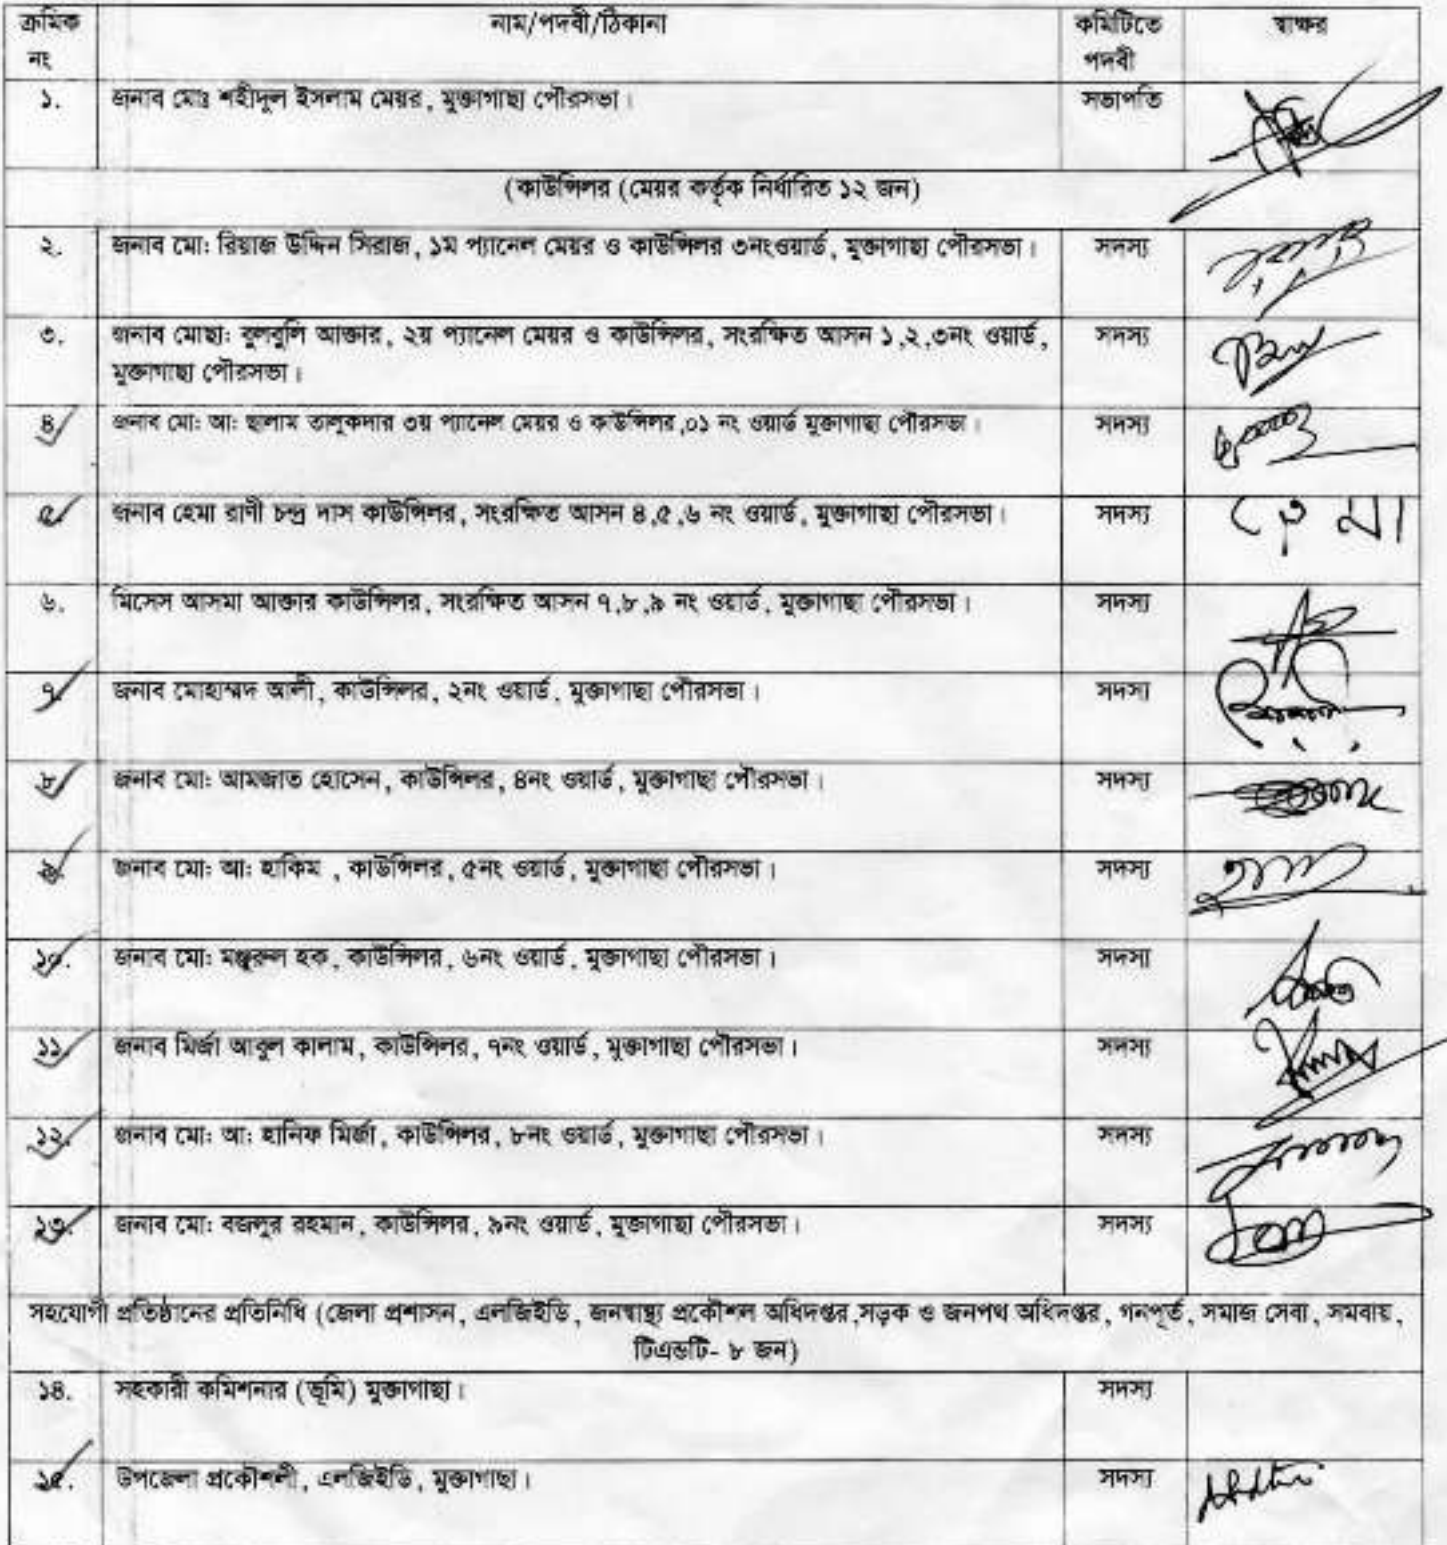 ক্রমিক নং নাম/পদবী/ঠিকানা কমিটিতে পদবী স্বাক্ষর
১. জনাব মোঃ শহীদুল ইসলাম মেয়র, মুক্তাগাছা পৌরসভা। সভাপতি
(কাউন্সিলর (মেয়র কর্তৃক নির্ধারিত ১২ জন)
২. জনাব মো: রিয়াজ উদ্দিন সিরাজ, ১ম প্যানেল মেয়র ও কাউন্সিলর ৩নংওয়ার্ড, মুক্তাগাছা পৌরসভা। সদস্য
৩. জনাব মোছা: বুলবুলি আক্তার, ২য় প্যানেল মেয়র ও কাউন্সিলর, সংরক্ষিত আসন ১,২,৩নং ওয়ার্ড, সদস্য
মুক্তাগাছা পৌরসভা।
৪ জনাব মো: আ: ছালাম তালুকদার ৩য় প্যানেল মেয়র ও কাউন্সিলর,০১ নং ওয়ার্ড মুক্তাগাছা পৌরসভা। সদস্য
৫ জনাব হেমা রাণী চন্দ্র দাস কাউন্সিলর, সংরক্ষিত আসন ৪,৫,৬ নং ওয়ার্ড, মুক্তাগাছা পৌরসভা। সদস্য হেমা
৬. মিসেস আসমা আক্তার কাউন্সিলর, সংরক্ষিত আসন ৭,৮,৯ নং ওয়ার্ড, মুক্তাগাছা পৌরসভা। সদস্য
৭. জনাব মোহাম্মদ আলী, কাউন্সিলর, ২নং ওয়ার্ড, মুক্তাগাছা পৌরসভা। সদস্য
৮ জনাব মো: আমজাত হোসেন, কাউন্সিলর, ৪নং ওয়ার্ড, মুক্তাগাছা পৌরসভা। সদস্য
৯ জনাব মো: আ: হাকিম , কাউন্সিলর, ৫নং ওয়ার্ড, মুক্তাগাছা পৌরসভা। সদস্য
১০. জনাব মো: মঞ্জুরুল হক, কাউন্সিলর, ৬নং ওয়ার্ড, মুক্তাগাছা পৌরসভা। সদস্য
১১ জনাব মির্জা আবুল কালাম, কাউন্সিলর, ৭নং ওয়ার্ড, মুক্তাগাছা পৌরসভা। সদস্য
১২. জনাব মো: আ: হানিফ মির্জা, কাউন্সিলর, ৮নং ওয়ার্ড, মুক্তাগাছা পৌরসভা। সদস্য
১৩. জনাব মো: বজলুর রহমান, কাউন্সিলর, ৯নং ওয়ার্ড, মুক্তাগাছা পৌরসভা। সদস্য
সহযোগী প্রতিষ্ঠানের প্রতিনিধি (জেলা প্রশাসন, এলজিইডি, জনস্বাস্থ্য প্রকৌশল অধিদপ্তর,সড়ক ও জনপথ অধিদপ্তর, গনপূর্ত, সমাজ সেবা, সমবায়,
টিএন্ডটি- ৮ জন)
১৪. সহকারী কমিশনার (ভূমি) মুক্তাগাছা। সদস্য
১৫. উপজেলা প্রকৌশলী, এলজিইডি, মুক্তাগাছা। সদস্য